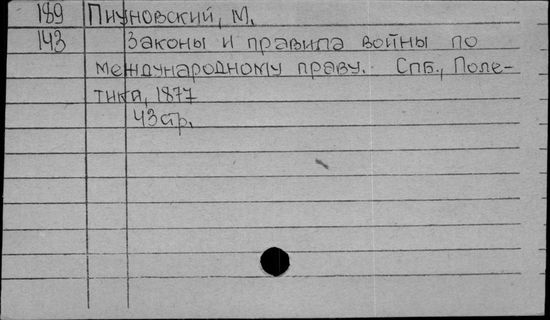 189 Пиуновский, М.
143 Законы и правила войны по
международному праву. Спб., Поле-
тика, 1877
43 стр.